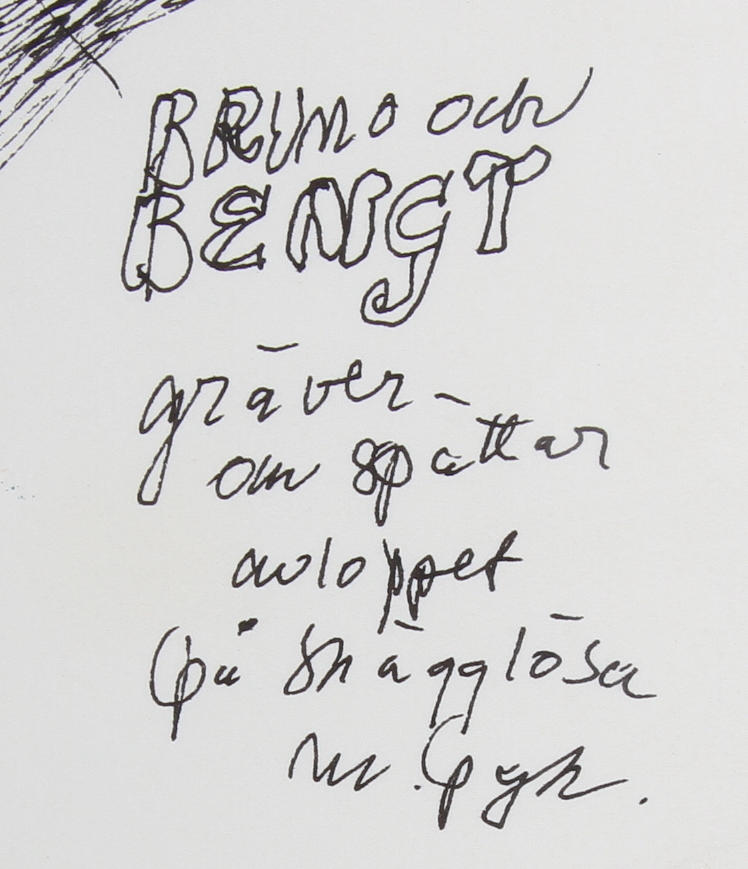 BRUNO och
BENGT
gräver
om spättar
avloppet
på Skägglösa